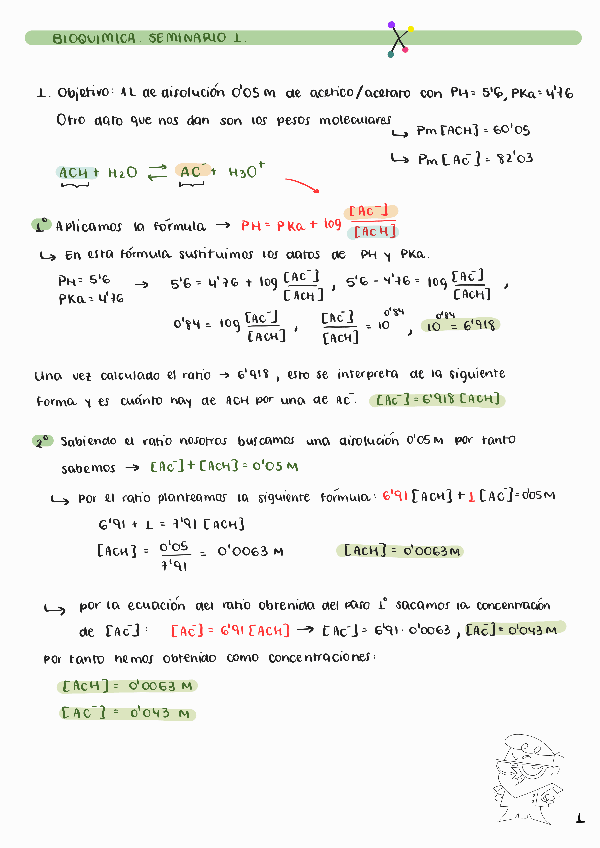 BIOQUIMICA. SEMINARIO 1.
1. Objetivo: 1L de disolución 0'05 M de acetico/acetato con PH = 5'6, PKa = 4'76
Otro dato que nos dan son los pesos moleculares
↳ Pm [ACH] = 60'05
↳ Pm [AC⁻] = 82'03
ACH + H2O ⇌ AC⁻ + H3O⁺
1º Aplicamos la fórmula → PH = PKa + log [AC⁻]/[ACH]
↳ En esta fórmula sustituimos los datos de PH y PKa.
PH = 5'6 → 5'6 = 4'76 + log [AC⁻]/[ACH], 5'6 - 4'76 = log [AC⁻]/[ACH],
PKa = 4'76
0'84 = log [AC⁻]/[ACH], [AC⁻]/[ACH] = 10^0'84, 10^0'84 = 6'918
Una vez calculado el ratio → 6'918, esto se interpreta de la siguiente
forma y es cuánto hay de ACH por una de AC⁻. [AC⁻] = 6'918 [ACH]
2º Sabiendo el ratio nosotros buscamos una disolución 0'05M por tanto
sabemos → [AC⁻] + [ACH] = 0'05 M
↳ Por el ratio planteamos la siguiente fórmula: 6'91 [ACH] + 1 [AC⁻] = 0'05 M
6'91 + 1 = 7'91 [ACH]
[ACH] = 0'05/7'91 = 0'0063 M [ACH] = 0'0063 M
↳ por la ecuación del ratio obtenida del paso 1º sacamos la concentración
de [AC⁻]: [AC⁻] = 6'91 [ACH] → [AC⁻] = 6'91 · 0'0063, [AC⁻] = 0'043 M
Por tanto hemos obtenido como concentraciones:
[ACH] = 0'0063 M
[AC⁻] = 0'043 M
1